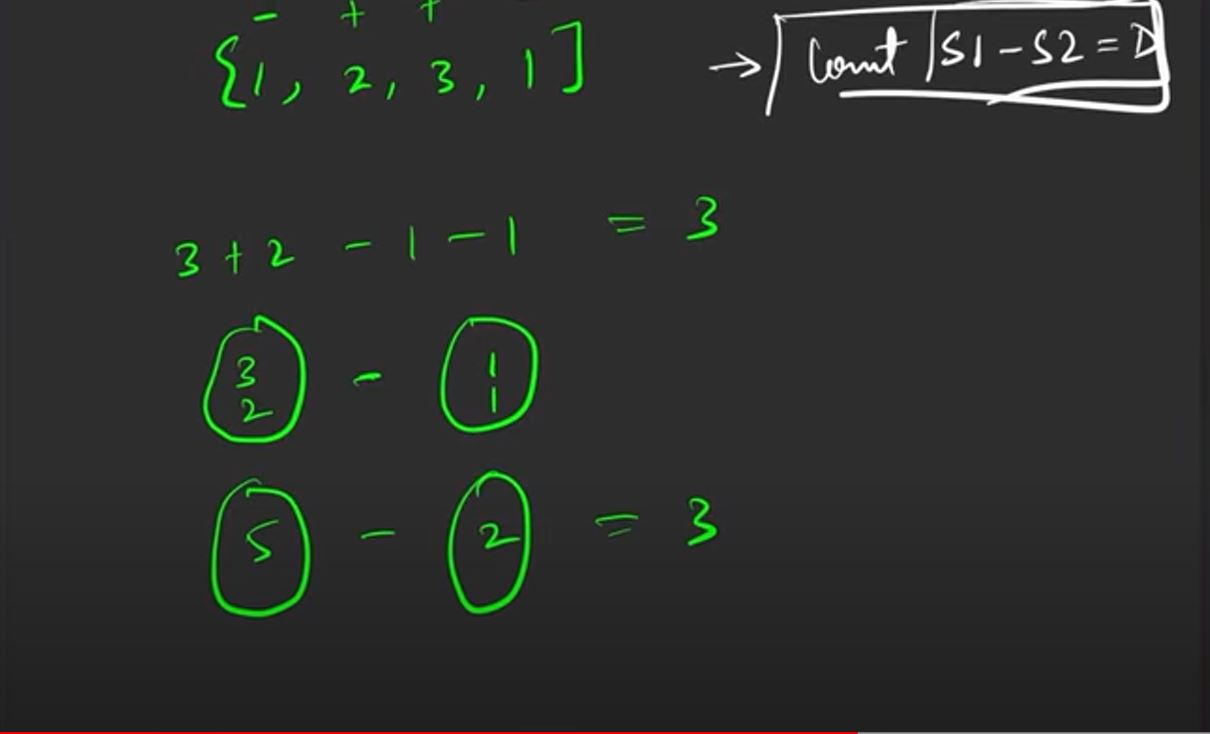 - + +
{1, 2, 3, 1] → Count |S1 - S2 = D
3 + 2 - 1 - 1 = 3
3 - 1
2 1
5 - 2 = 3